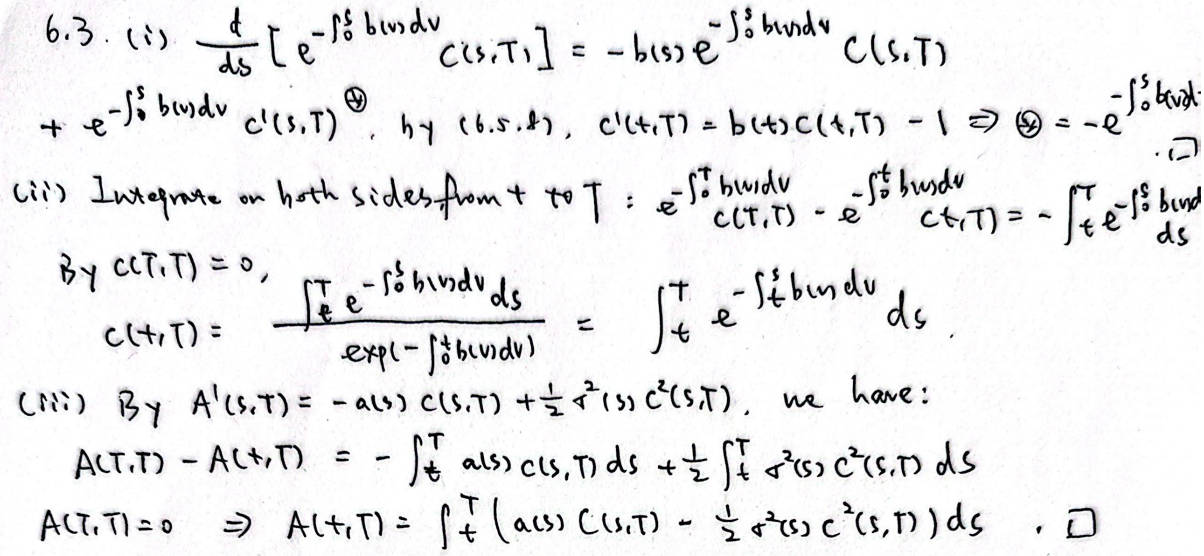 6.3. (i) d/ds [e^{-∫_0^s b(v)dv} C(s,T)] = -b(s) e^{-∫_0^s b(v)dv} C(s,T)
+ e^{-∫_0^s b(v)dv} C'(s,T) ⊛, by (6.5.8), C'(t,T) = b(t)C(t,T) - 1 ⇒ ⊛ = -e^{-∫_0^s b(v)d
. □
(ii) Integrate on both sides from t to T : e^{-∫_0^T b(v)dv} C(T,T) - e^{-∫_0^t b(v)dv} C(t,T) = -∫_t^T e^{-∫_0^s b(v)d} ds
By C(T,T) = 0,
C(t,T) = \frac{∫_t^T e^{-∫_0^s b(v)dv} ds}{exp(-∫_0^t b(v)dv)} = ∫_t^T e^{-∫_t^s b(v)dv} ds.
(iii) By A'(s,T) = -a(s) C(s,T) + 1/2 σ²(s) C²(s,T), we have:
A(T,T) - A(t,T) = -∫_t^T a(s) C(s,T) ds + 1/2 ∫_t^T σ²(s) C²(s,T) ds
A(T,T) = 0 ⇒ A(t,T) = ∫_t^T (a(s) C(s,T) - 1/2 σ²(s) C²(s,T)) ds . □